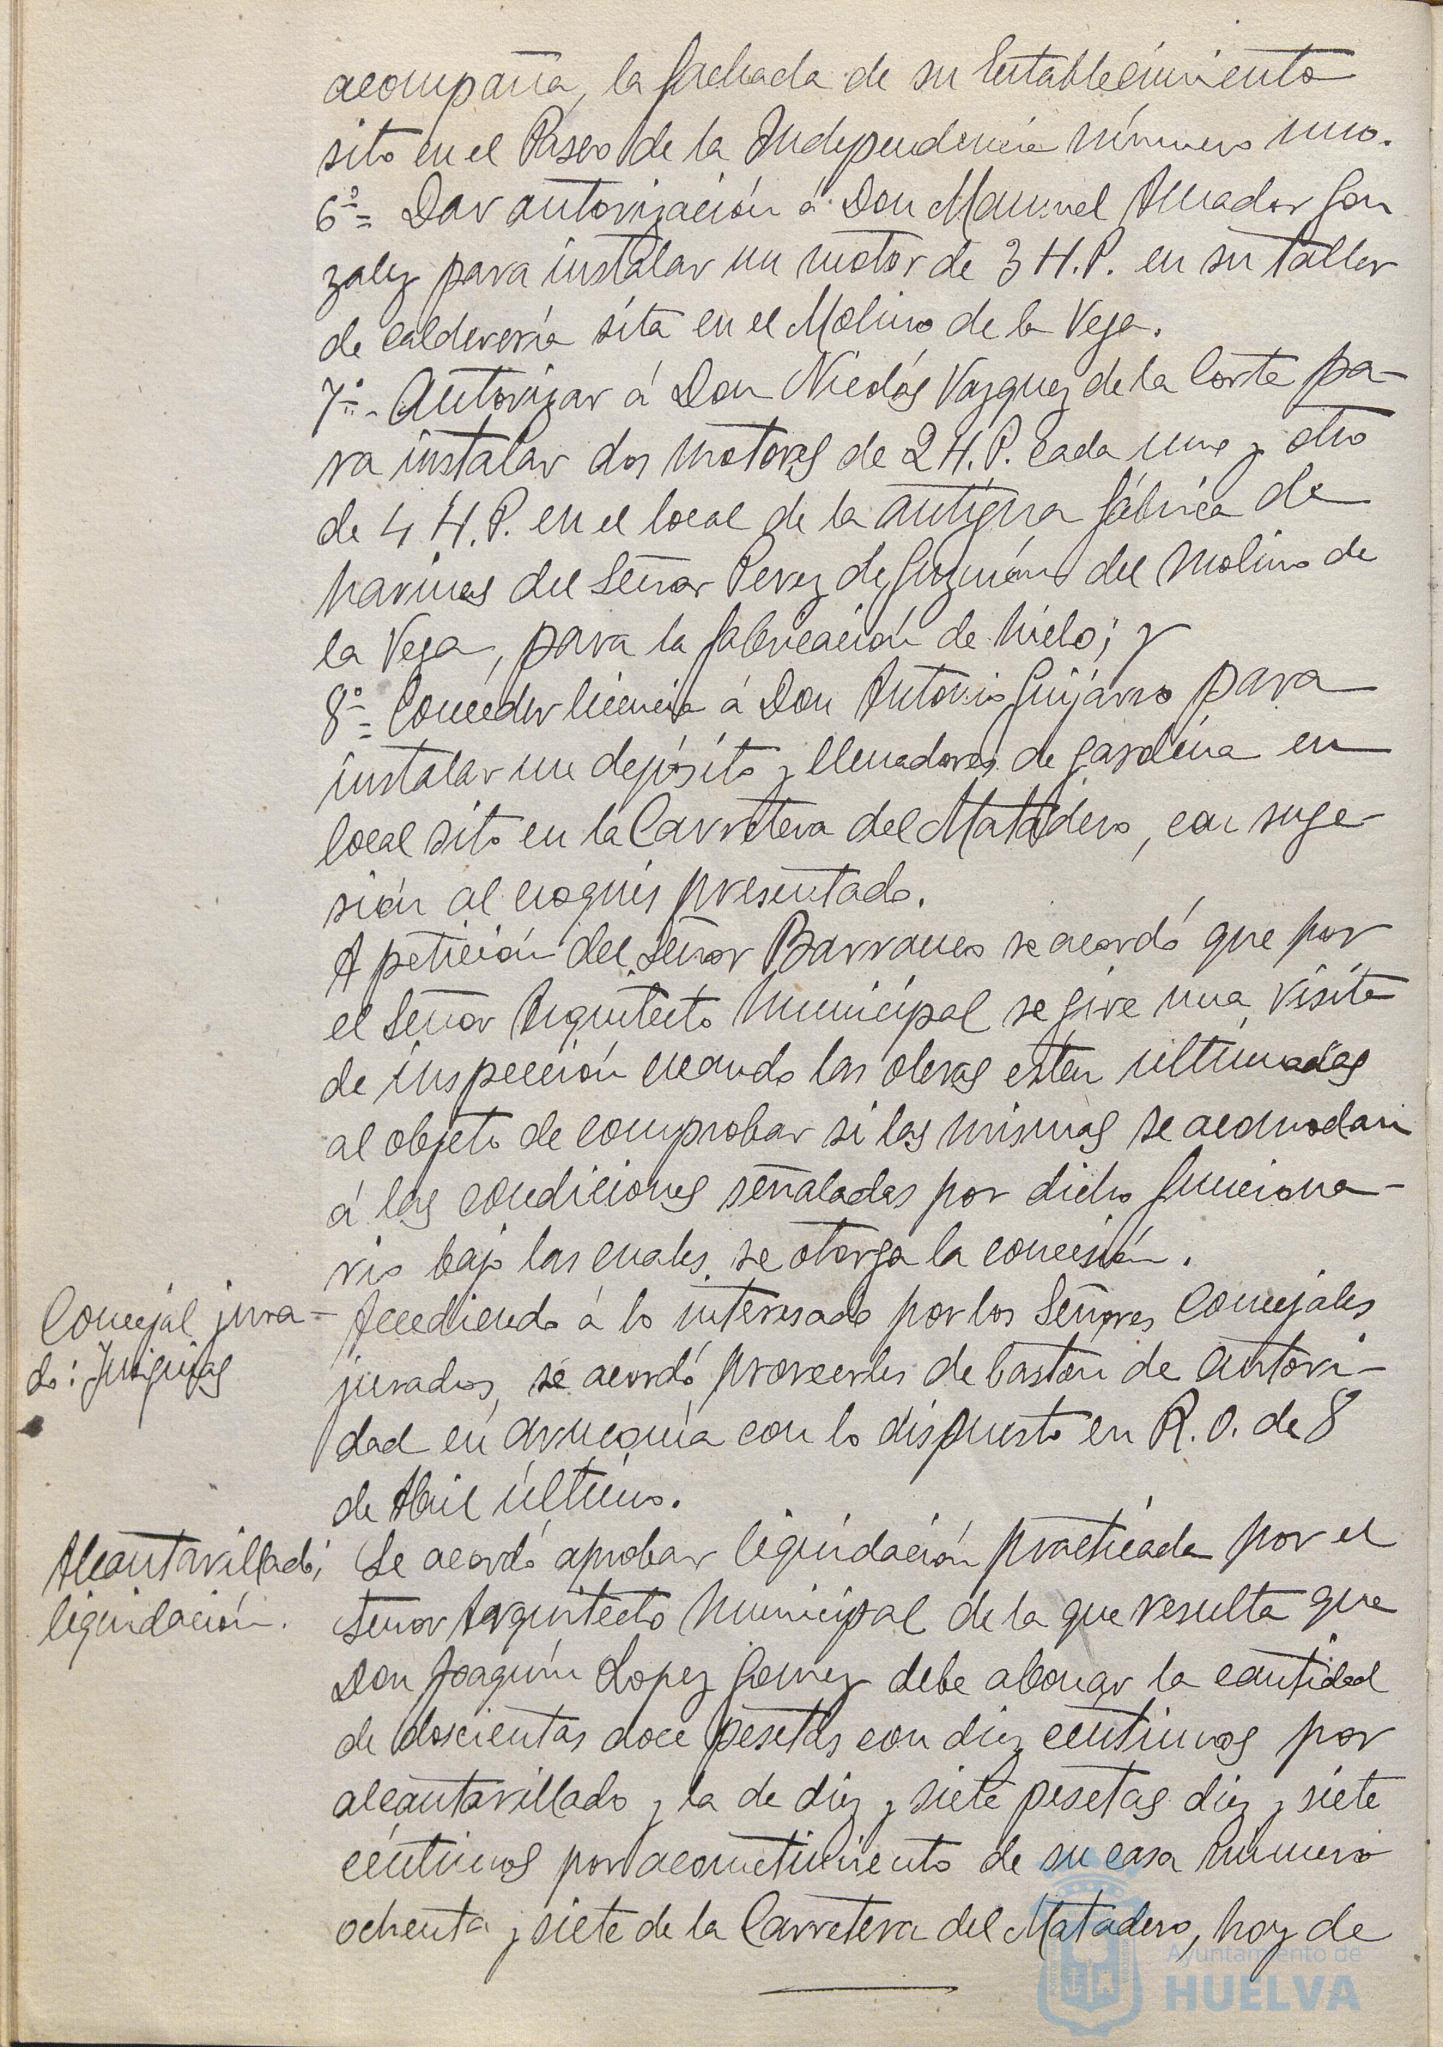 acompaña, la fachada de su Establecimiento
sito en el Paseo de la Independencia número uno.
6º= Dar autorización á Don Manuel Amador Gon
zalez para instalar un motor de 3 H.P. en su taller
de calderería sita en el Molino de la Vega.
7º- Autorizar á Don Nicolás Vazquez de la Corte pa-
ra instalar dos motores de 2 H.P. cada uno y otro
de 4 H.P. en el local de la antigua fábrica de
harinas del Señor Perez de Guzmán del Molino de
la Vega, para la fabricación de hielo; y
8º= Conceder licencia á Don Antonio Guijarro para
instalar un depósito y llenadores de gasolina en
local sito en la Carretera del Matadero, con suge-
sión al croquis presentado.
A petición del Señor Barranco se acordó que por
el Señor Arquitecto Municipal se gire una visita
de inspección cuando las obras estén ultimadas
al objeto de comprobar si las mismas se acomodan
á las condiciones señaladas por dicho funciona-
rio bajo las cuales se otorga la concesión.
Concejal jura-
do: Insignias
Accediendo á lo interesado por los Señores Concejales
jurados, se acordó proveerles de bastón de autori-
dad en armonía con lo dispuesto en R.O. de 8
de Abril último.
Alcantarillado;
liquidación.
Se acordó aprobar liquidación practicada por el
Señor Arquitecto Municipal de la que resulta que
Don Joaquín Lopez Gomez debe abonar la cantidad
de doscientas doce pesetas con diez centimos por
alcantarillado y la de diez y siete pesetas diez y siete
céntimos por acometimiento de su casa número
ochenta y siete de la Carretera del Matadero, hoy de
Ayuntamiento de
HUELVA